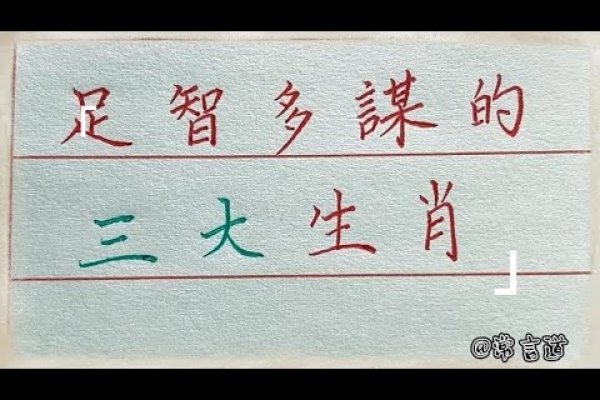 足智多謀的
三大生肖
@常言道